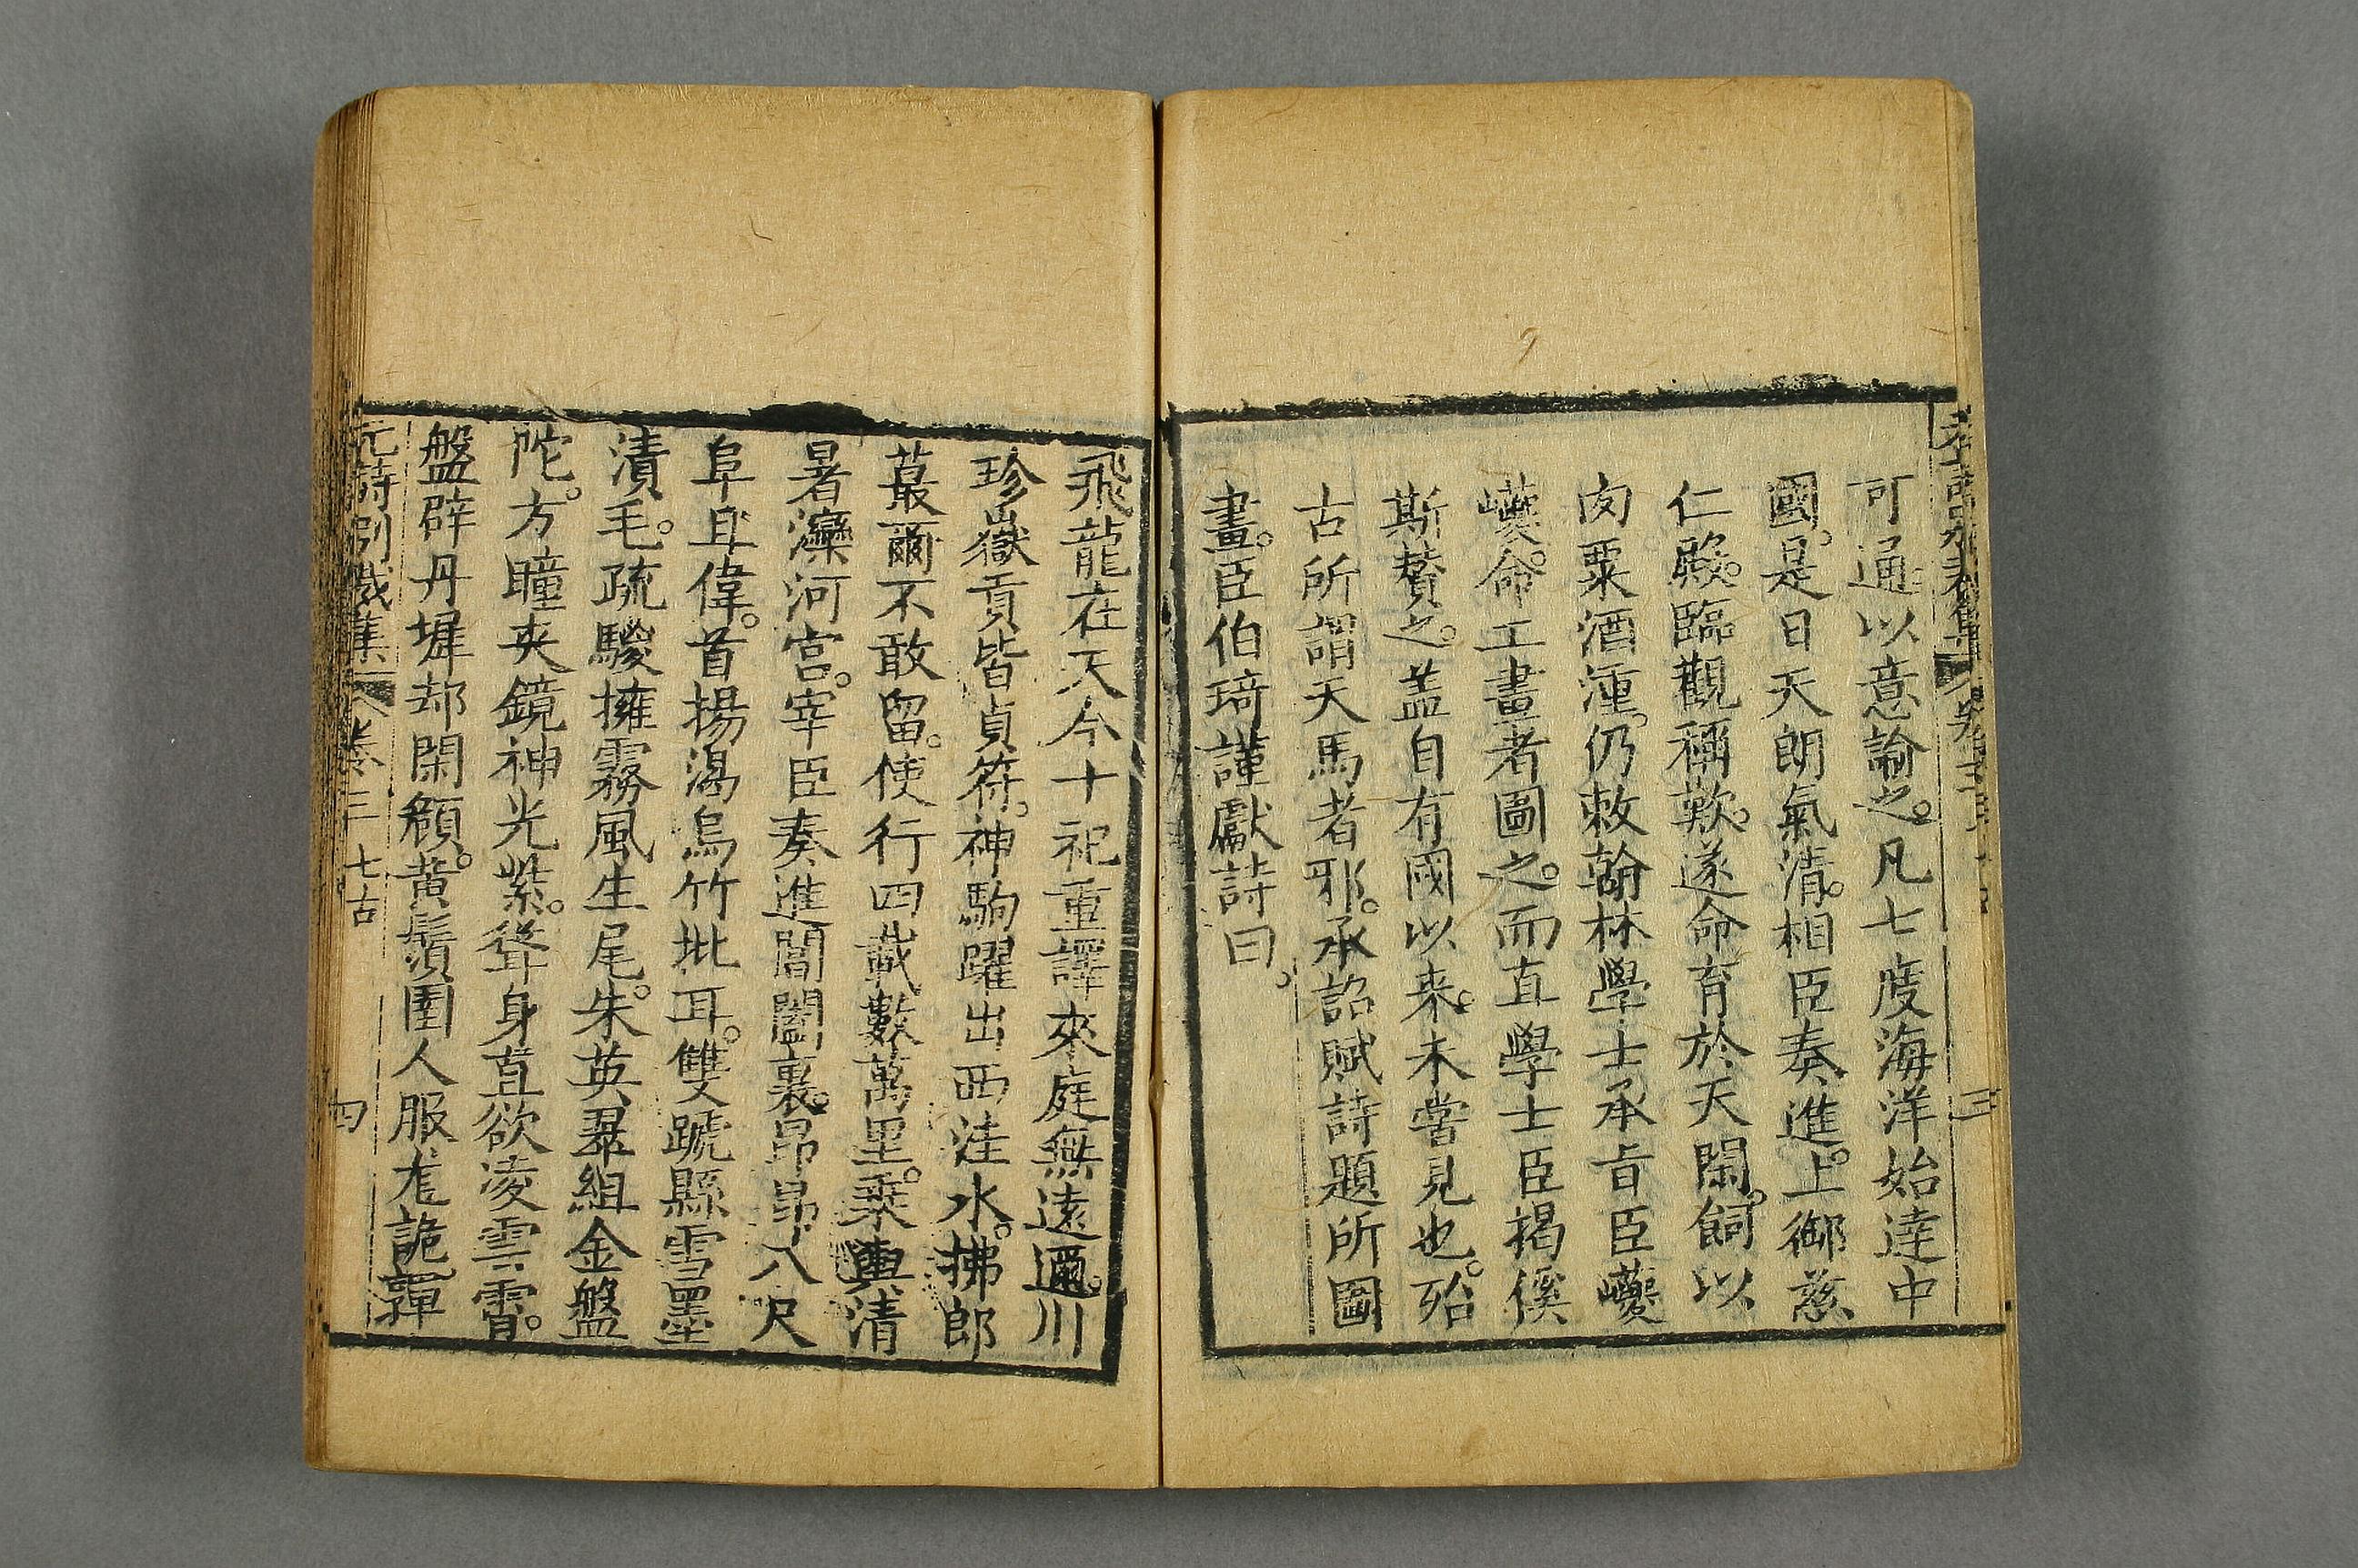 可通以意諭之。凡七度海洋始達中
國。是日天朗氣清。相臣奏進。上御慈
仁殿。臨觀稱歎。遂命育於天閑。飼以
肉粟酒湩。仍敕翰林學士承旨臣巙
巙。命工畫者圖之。而直學士臣揭傒
斯贊之。盖自有國以来。未嘗見也。殆
古所謂天馬者邪。承詔賦詩題所圖
畫。臣伯琦謹獻詩曰。
三
飛龍在天今十祀重譯來庭無遠邇。川
珍嶽貢皆貞符。神駒躍出西洼水。拂郎
蕞爾不敢留。使行四載數萬里。乘輿清
暑灤河宮。宰臣奏進閶闔裏。昂昂八尺
阜且偉。首揚渴烏竹批耳。雙蹏縣雪墨
漬毛。疏騣擁霧風生尾。朱英翠組金盤
陀。方瞳夾鏡神光紫。聳身直欲凌雲霄。
盤辟丹墀却閑顧。黃鬚圉人服尨詭嚲
元詩別裁集 卷三 七古 四